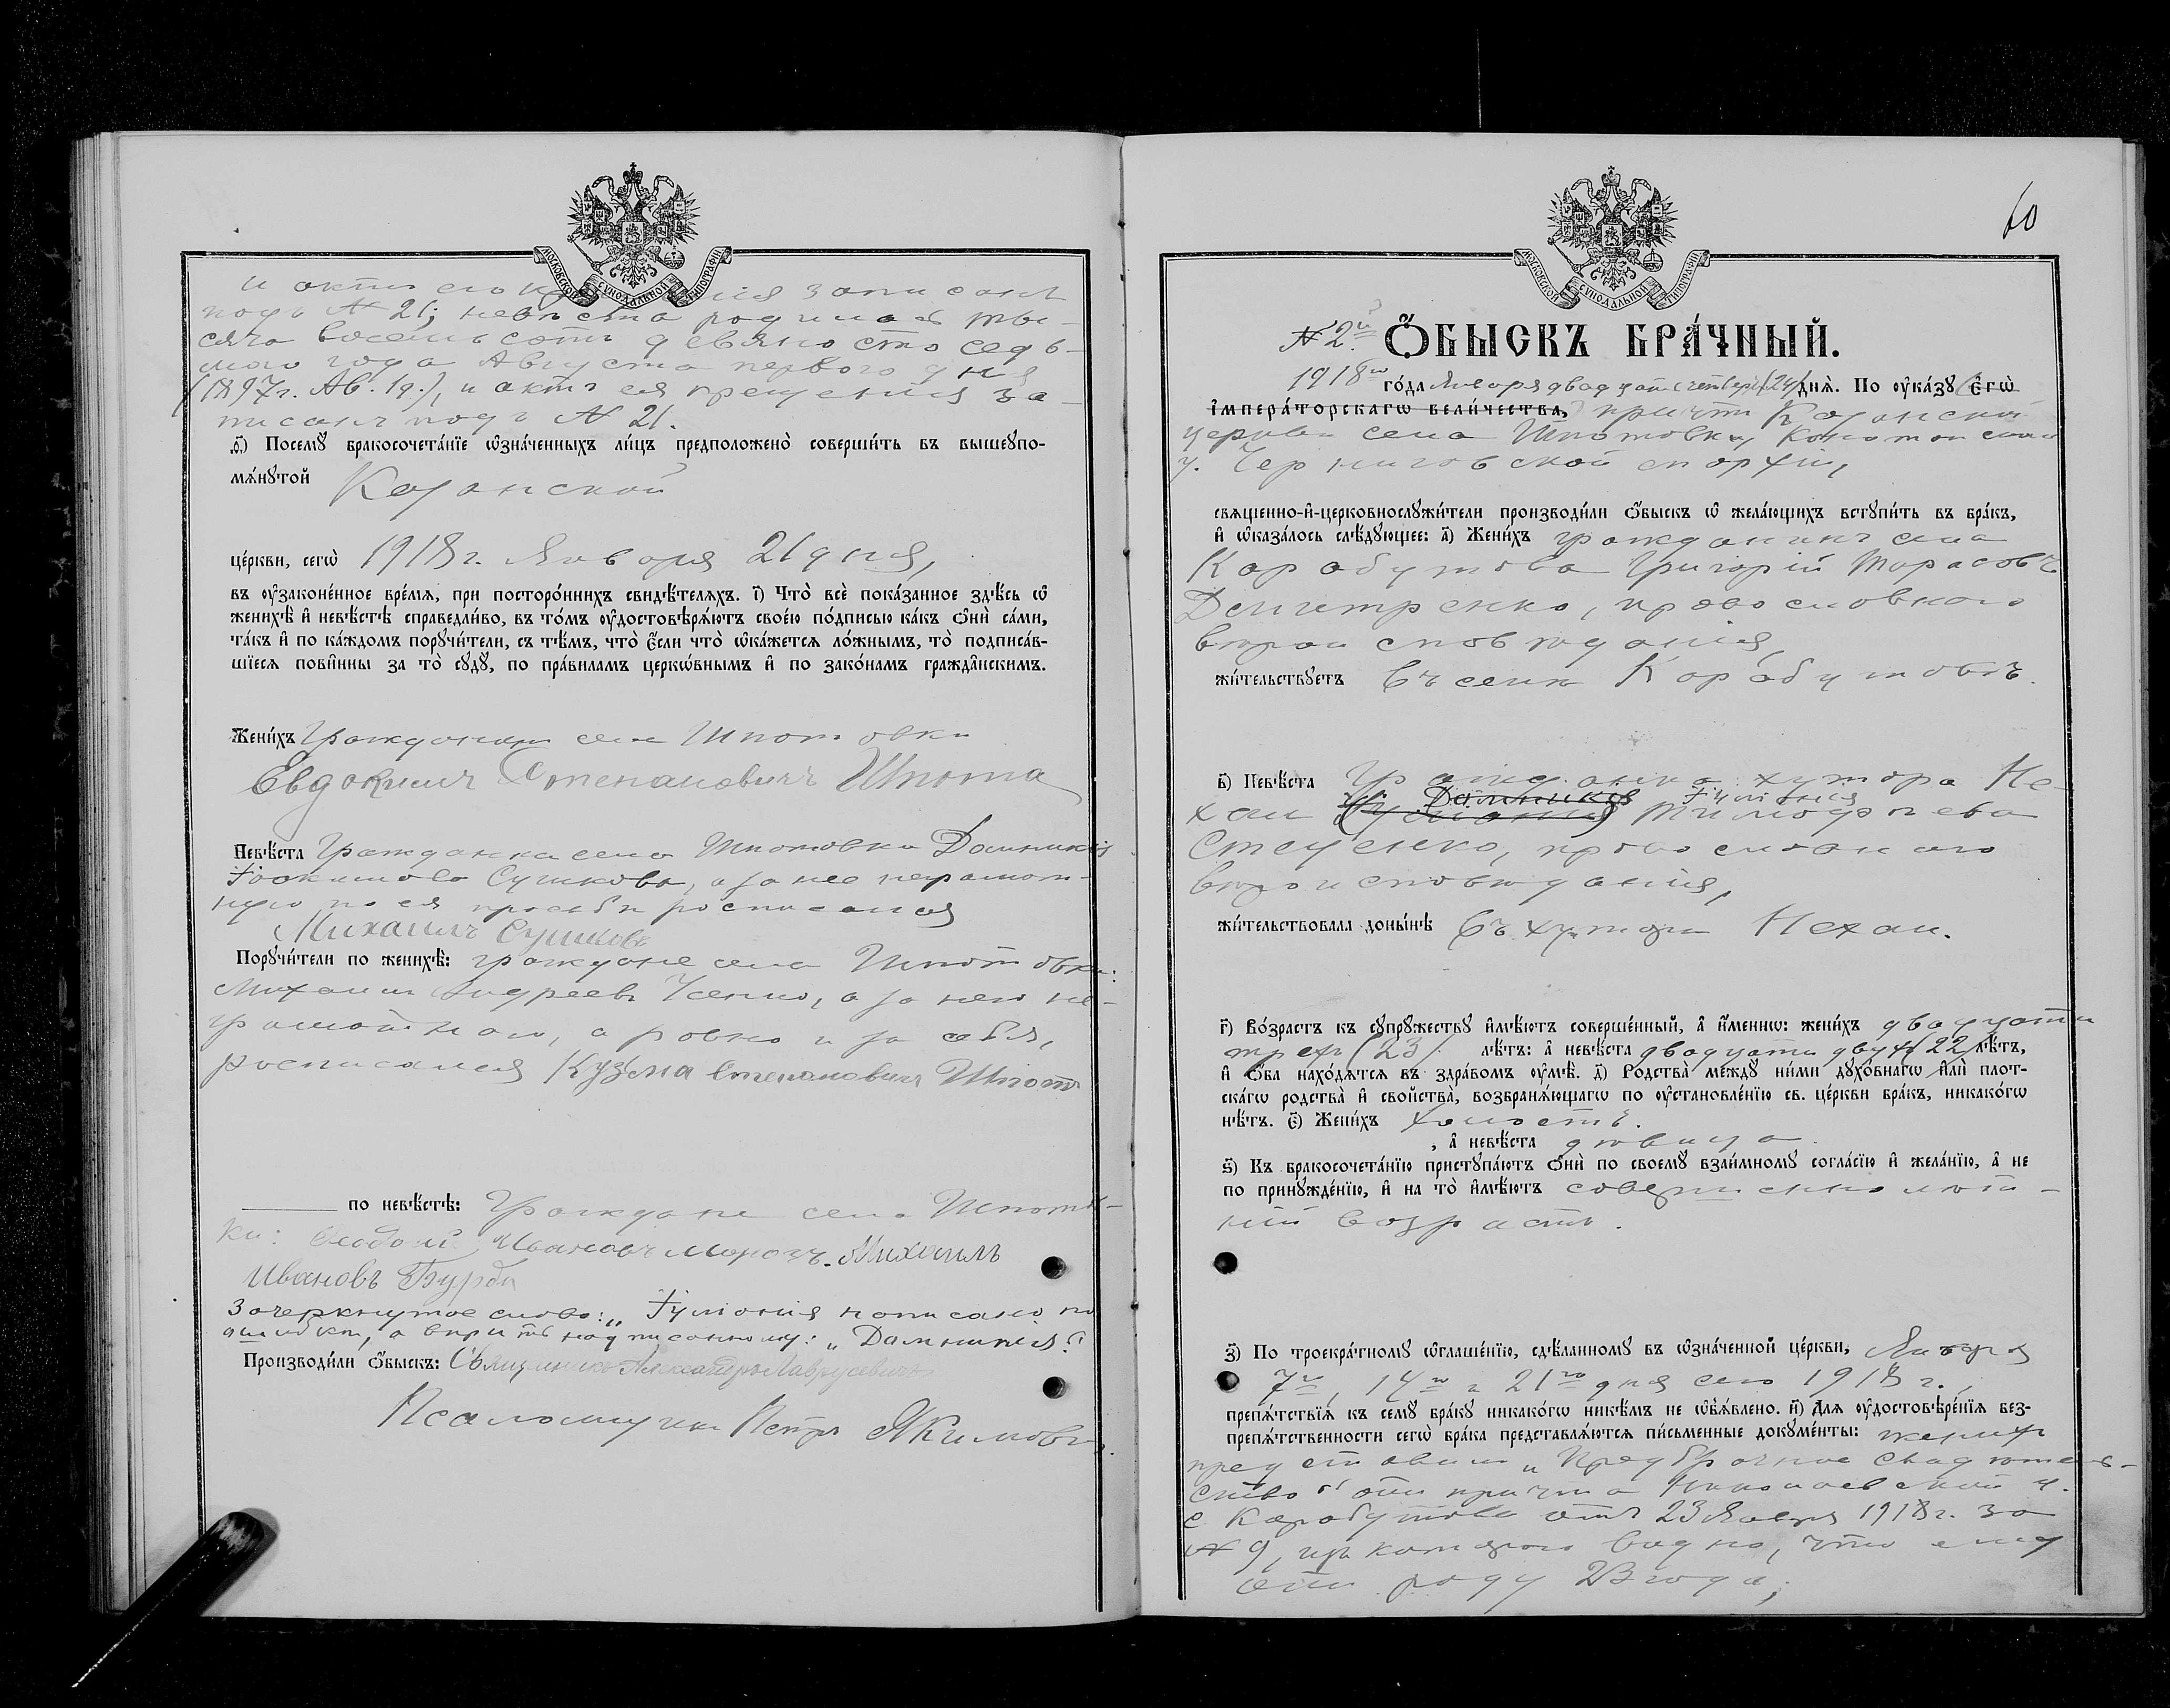 МОСКОВСКОЙ СѴНОДАЛЬНОЙ ТИПОГРАФІИ
и актъ его крещенія записанъ
подъ № 21; невѣста родилась ты-
сяча восемьсотъ девяносто седь-
мого года Августа перваго дня
(1897 г. Ав. 1 д.), и актъ ея крещенія за-
писанъ подъ № 21.
д҃) Посемꙋ̀ бракосочета́нїе ѡ҆зна́ченныхъ ли́цъ предположено̀ соверши́ть въ вышеꙋпо-
мѧ́нꙋтой Казанской
це́ркви, сегѡ̀ 1918 г. Января 21 дня,
въ ᲂу҆зако́ненное вре́мѧ, при посторо́ннихъ свидѣ́телѧхъ. і҃) Что̀ всѐ пока́занное здѣ́сь ѡ҆
женихѣ̀ и҆ невѣ́стѣ справедли́во, въ то́мъ ᲂу҆достовѣрѧ́ютъ свое́ю по́дписью ка́къ ѻ҆нѝ са́ми,
та́къ и҆ по ка́ждомъ порꙋчи́тели, съ тѣ́мъ, что̀ є҆́сли что̀ ѡ҆ка́жетсѧ ло́жнымъ, то̀ подписа́в-
шїесѧ пови́нны за то̀ сꙋдꙋ̀, по пра́виламъ церко́внымъ и҆ по зако́намъ гражда́нскимъ.
Жени́хъ Гражданинъ села Шпотовки
Евдокимъ Степановичъ Шпота
Невѣ́ста Гражданка села Шпотовки Домникія
Іоакимова Сушкова, а за нее неграмот-
ную по ея просьбѣ росписался
Михаилъ Сушковъ
Порꙋчи́тели по женихѣ̀: граждане села Шпотовки:
Михаилъ Андреевъ Усенко, а за него не-
грамотнаго, а равно и за себя,
росписался Кузьма Степановичъ Шпота
по невѣ́стѣ: Граждане села Шпотов-
ки: Ивановъ Морозъ. Михаилъ
Ивановъ Бурда
Зачеркнутое слово: „Іуліанія написано по
ошибкѣ, а вѣрить надписанному: „Домникія".
Производи́ли ѻ҆́быскъ: Священникъ Александръ Лаврусевичъ
Псаломщикъ Петръ Якимовъ.
60
МОСКОВСКОЙ СѴНОДАЛЬНОЙ ТИПОГРАФІИ
№ 2й Ѻ҆́БЫСКЪ БРА́ЧНЫЙ.
1918го го́да Января двадцать четверт. (24) днѧ̀. По ᲂу҆ка́зꙋ є҆гѡ̀
і҆мпера́торскагѡ вели́чества, причтъ Казанской
церкви села Шпотовки, Конотопскаго
у. Черниговской епархіи,
свѧще́нно-и҆-церковнослꙋжи́тели производи́ли ѻ҆́быскъ ѡ҆ жела́ющихъ встꙋпи́ть въ бра́къ,
и҆ ѡ҆каза́лось слѣ́дꙋющее: а҃) Жени́хъ гражданинъ села
Карабутова Григорій Тарасовъ
Демитренко, православнаго
вѣроисповѣданія,
жи́тельствꙋетъ въ селѣ Карабутовѣ.
в҃) Невѣ́ста Гражданка хутора Не-
хаи Домникія Іуліанія Тимофѣева
Стеценко, православнаго
вѣроисповѣданія,
жи́тельствовала доны́нѣ въ хуторѣ Нехаи.
г҃) Во́зрастъ къ сꙋпрꙋ́жествꙋ и҆мѣ́ютъ соверше́нный, а҆ и҆́меннѡ: жени́хъ двадцати
трех (23) лѣ́тъ: а҆ невѣ́ста двадцати двухъ (22) лѣ́тъ,
и҆ ѻ҆́ба нахо́дѧтсѧ въ здра́вомъ ᲂу҆мѣ̀. д҃) Родства̀ ме́ждꙋ ни́ми дꙋхо́внагѡ и҆лѝ плот-
ска́гѡ родства̀ и҆ свойства̀, возбранѧ́ющагѡ по ᲂу҆становле́нїю св. це́ркви бра́къ, никако́гѡ
нѣ́тъ. є҃) Жени́хъ холостъ.
, а҆ невѣ́ста дѣвица.
ѕ҃) Къ бракосочета́нїю пристꙋпа́ютъ ѻ҆нѝ по своемꙋ̀ взаи́мномꙋ согла́сїю и҆ жела́нїю, а҆ не
по принꙋжде́нїю, и҆ на то̀ и҆мѣ́ютъ совершеннолѣт-
ній возрастъ.
з҃) По троекра́тномꙋ ѡ҆глаше́нїю, сдѣ́ланномꙋ въ ѡ҆зна́ченной це́ркви, Января
7го, 14го и 21го дня сего 1918 г.,
препѧ́тствїѧ къ семꙋ̀ бра́кꙋ никако́гѡ никѣ́мъ не ѡ҆б̾ѧ́влено. и҃) Длѧ ᲂу҆достовѣре́нїѧ без-
препѧ́тственности сегѡ̀ бра́ка представлѧ́ютсѧ пи́сьменные докꙋме́нты: женихъ
представилъ „Предбрачное свидѣтель-
ство" отъ причта Николаевской ц.
с. Карабутова отъ 23 Января 1918 г. за
№ 9, изъ котораго видно, что ему
отъ роду 23 года;